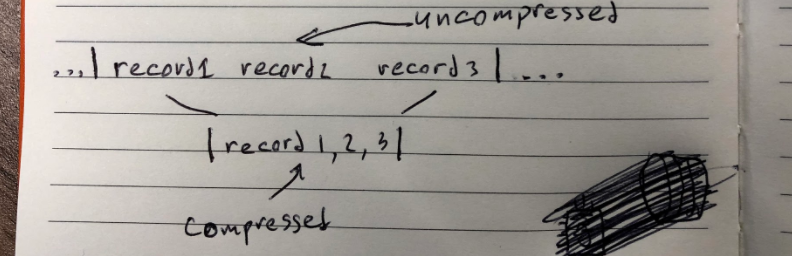 uncompressed
...| record1 record2 record3 | ...
| record 1, 2, 3 |
compressed